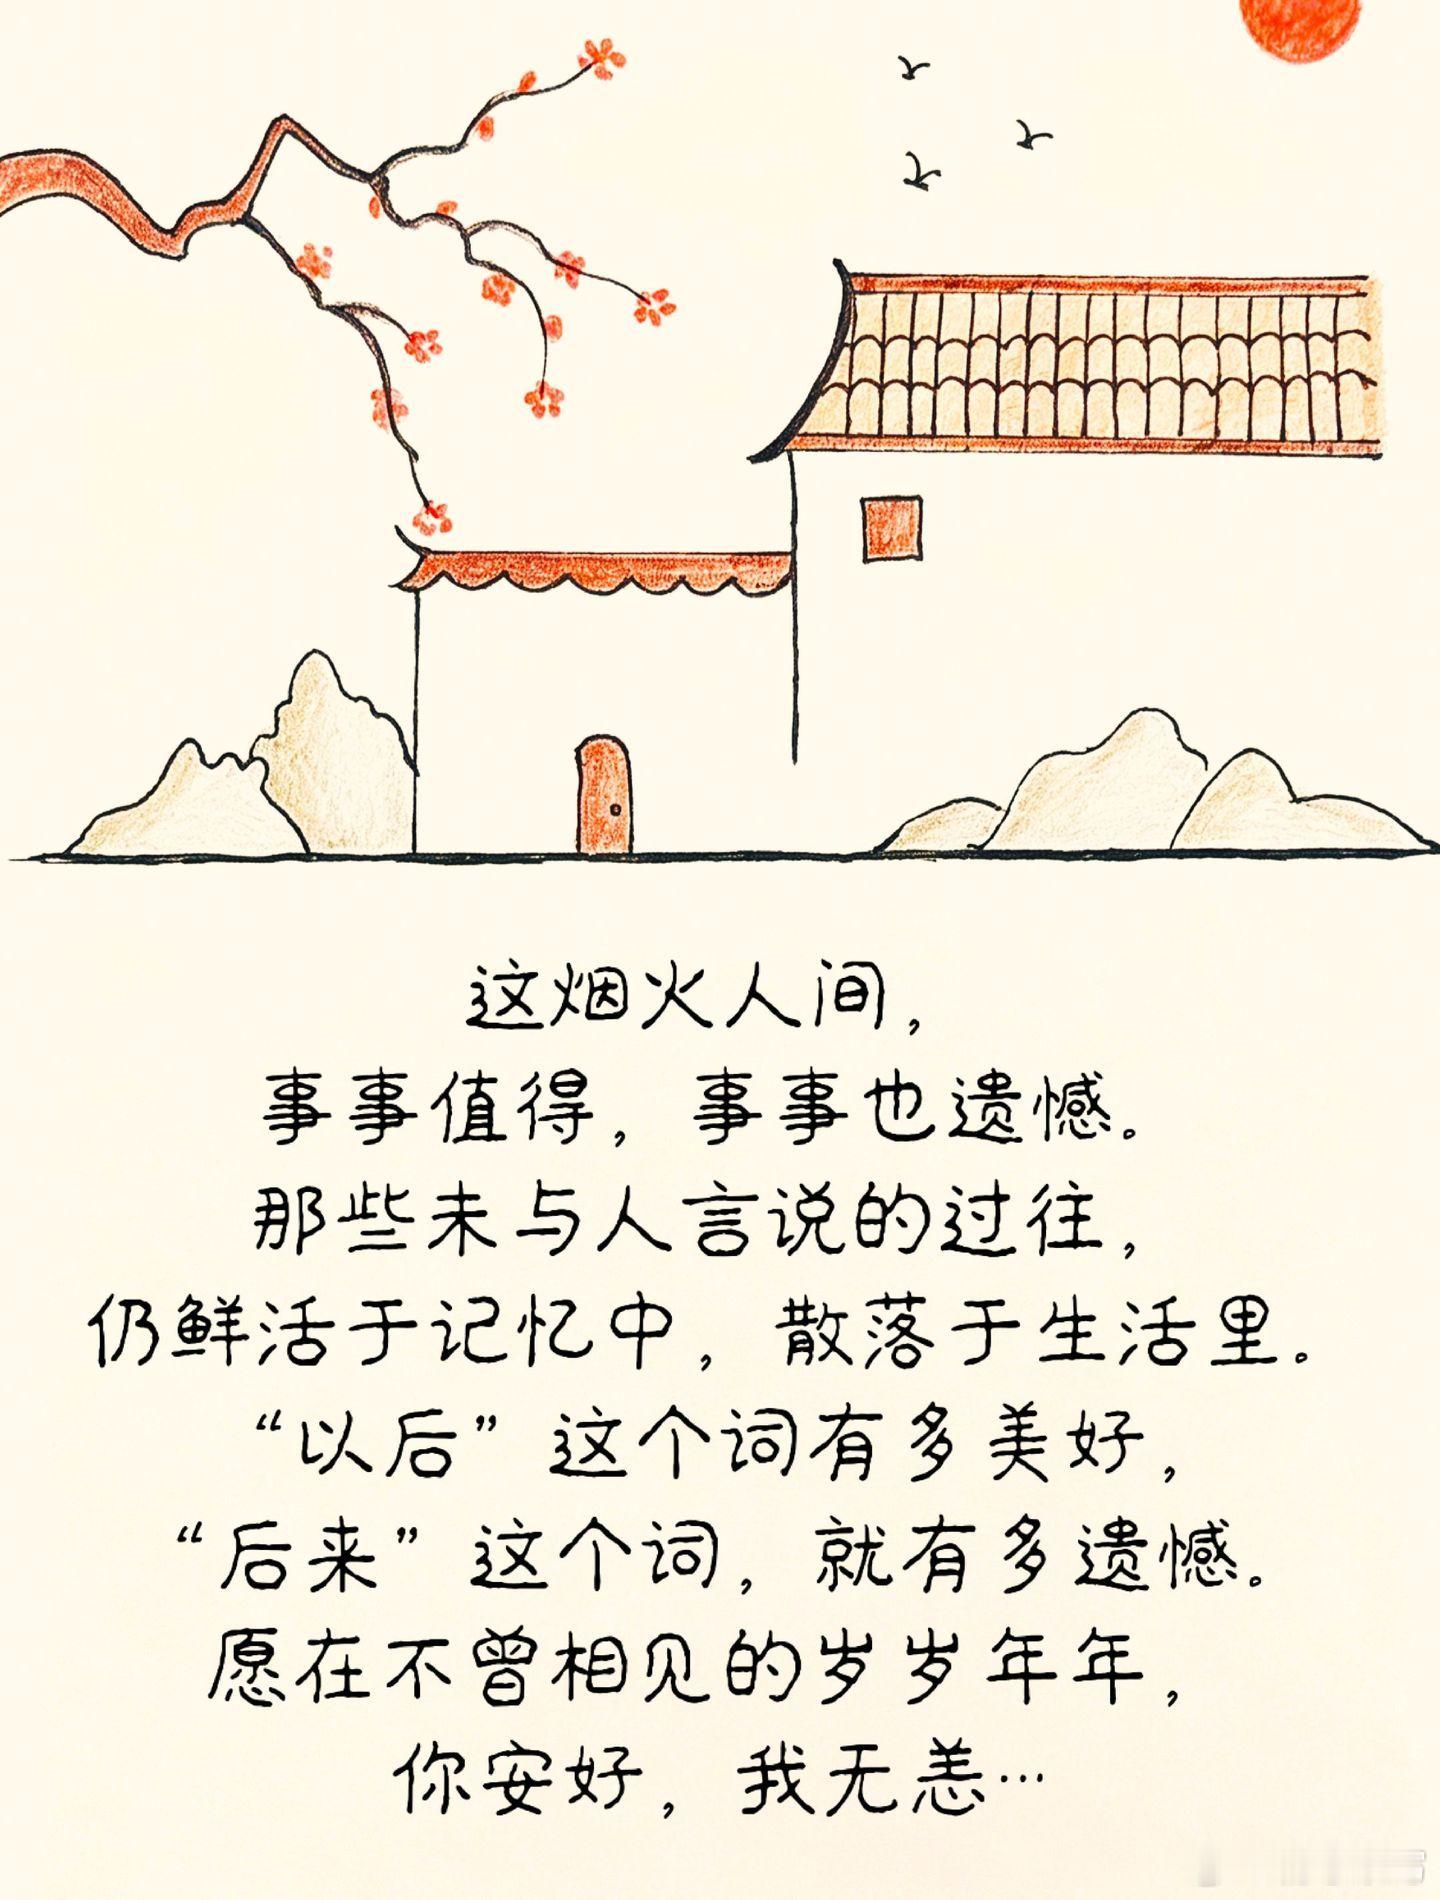 这烟火人间，
事事值得，事事也遗憾。
那些未与人言说的过往，
仍鲜活于记忆中，散落于生活里。
“以后”这个词有多美好，
“后来”这个词，就有多遗憾。
愿在不曾相见的岁岁年年，
你安好，我无恙…